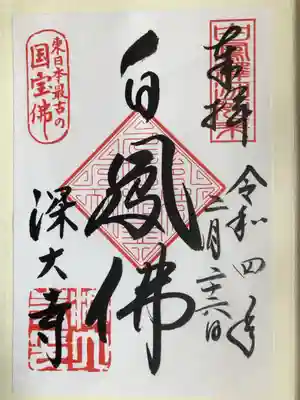 奉拝
令和四年
二月二十六日
白鳳佛
深大寺
東日本最古の
国宝佛